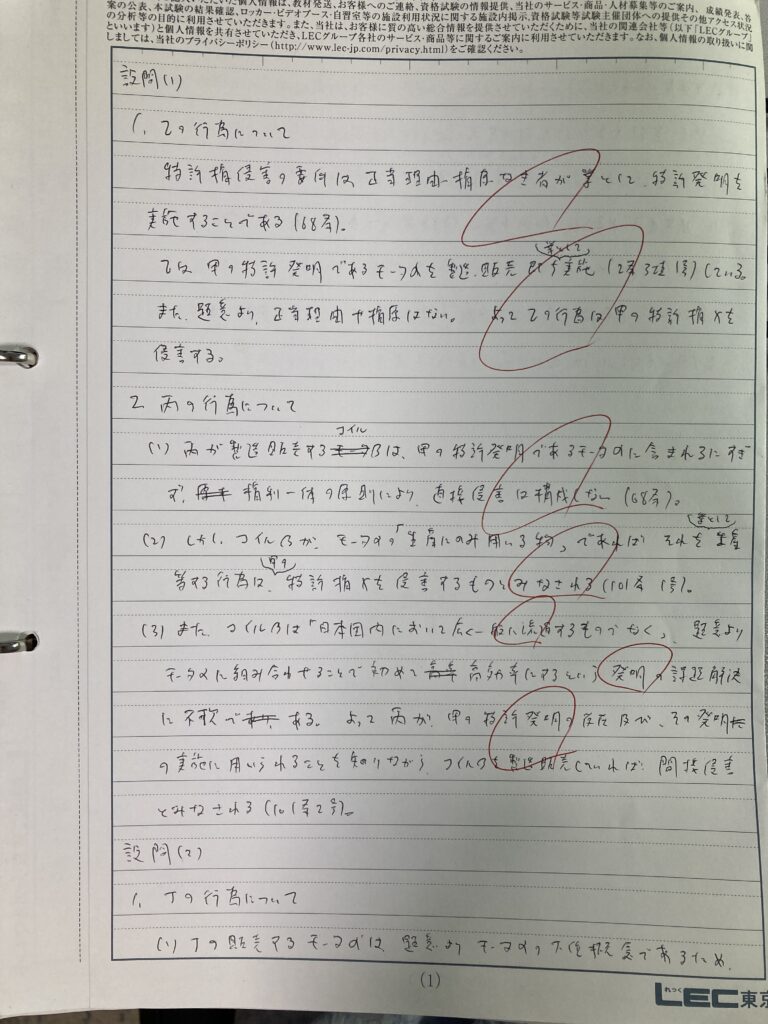 案の公表、本試験の結果確認、ロッカー・ビデオブース・自習室等の施設利用状況に関する施設内掲示、資格試験等試験主催団体への提供その他アクセス状況
の分析等の目的に利用させていただきます。また、当社は、お客様に質の高い総合情報を提供させていただくために、当社の関連会社等(以下「LECグループ」
といいます)と個人情報を共有させていただき、LECグループ各社のサービス・商品等に関するご案内に利用させていただきます。なお、個人情報の取り扱いに関
しましては、当社のプライバシーポリシー(http://www.lec-jp.com/privacy.html)をご確認ください。
設問(1)
1. 乙の行為について
特許権侵害の要件は、正当理由・権原なき者が業として、特許発明を
実施することである(68条)。
業として
乙は、甲の特許発明であるモータαを製造、販売即ち実施(2条3項1号)している。
また、題意より、正当理由や権原はない。 よって乙の行為は甲の特許権Xを
侵害する。
2. 丙の行為について
コイル
(1) 丙が製造販売するβは、甲の特許発明であるモータαに含まれるにすぎ
ず、権利一体の原則により、直接侵害は構成しない(68条)。
業として
(2) しかし、コイルβが、モータαの「生産にのみ用いる物」であれば、それを生産
甲の
等する行為は、特許権Xを侵害するものとみなされる(101条1号)。
(3) また、コイルβは「日本国内において広く一般に流通するものでなく」、題意より
モータαに組み合わせることで初めて高効率にするという発明の課題解決
に不可欠である。よって丙が、甲の特許発明の存在及び、その発明
の実施に用いられることを知りながら、コイルβを製造販売していれば、間接侵害
とみなされる(101条2号)。
設問(2)
1. 丁の行為について
(1) 丁の販売するモータα'は、題意よりモータαの下位概念であるため、
(1)
れっく LEC東京